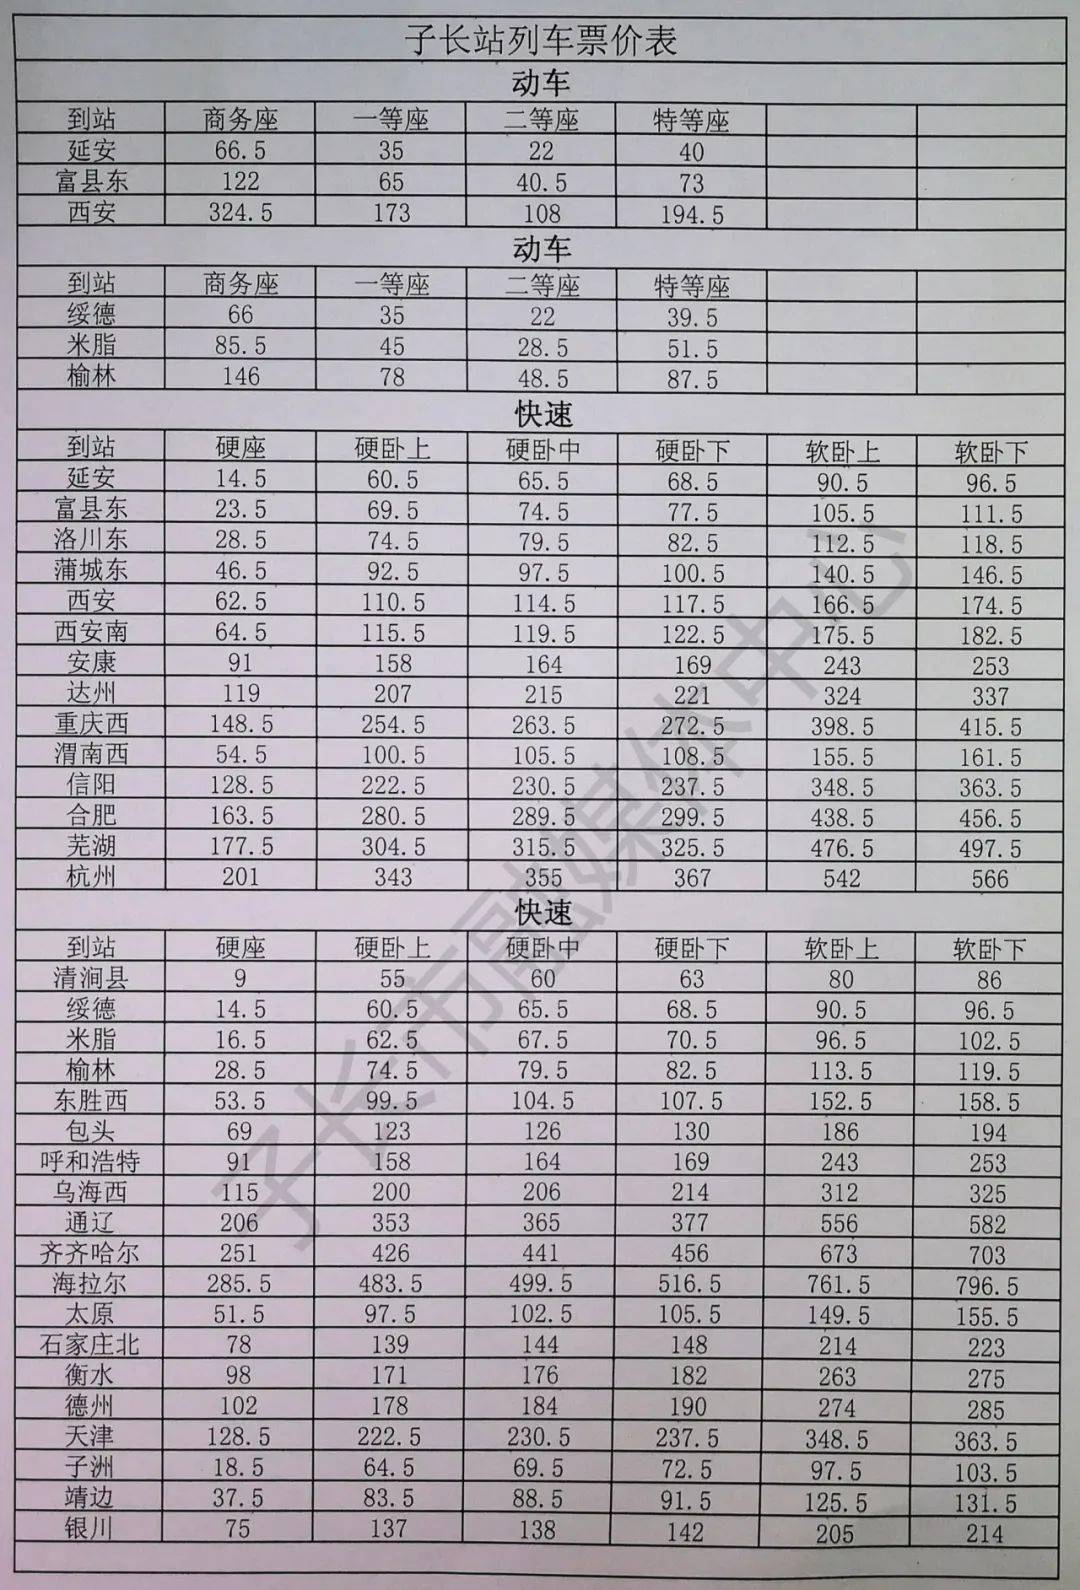 子长站列车票价表
动车
到站 商务座 一等座 二等座 特等座
延安 66.5 35 22 40
富县东 122 65 40.5 73
西安 324.5 173 108 194.5
动车
到站 商务座 一等座 二等座 特等座
绥德 66 35 22 39.5
米脂 85.5 45 28.5 51.5
榆林 146 78 48.5 87.5
快速
到站 硬座 硬卧上 硬卧中 硬卧下 软卧上 软卧下
延安 14.5 60.5 65.5 68.5 90.5 96.5
富县东 23.5 69.5 74.5 77.5 105.5 111.5
洛川东 28.5 74.5 79.5 82.5 112.5 118.5
蒲城东 46.5 92.5 97.5 100.5 140.5 146.5
西安 62.5 110.5 114.5 117.5 166.5 174.5
西安南 64.5 115.5 119.5 122.5 175.5 182.5
安康 91 158 164 169 243 253
达州 119 207 215 221 324 337
重庆西 148.5 254.5 263.5 272.5 398.5 415.5
渭南西 54.5 100.5 105.5 108.5 155.5 161.5
信阳 128.5 222.5 230.5 237.5 348.5 363.5
合肥 163.5 280.5 289.5 299.5 438.5 456.5
芜湖 177.5 304.5 315.5 325.5 476.5 497.5
杭州 201 343 355 367 542 566
快速
到站 硬座 硬卧上 硬卧中 硬卧下 软卧上 软卧下
清涧县 9 55 60 63 80 86
绥德 14.5 60.5 65.5 68.5 90.5 96.5
米脂 16.5 62.5 67.5 70.5 96.5 102.5
榆林 28.5 74.5 79.5 82.5 113.5 119.5
东胜西 53.5 99.5 104.5 107.5 152.5 158.5
包头 69 123 126 130 186 194
呼和浩特 91 158 164 169 243 253
乌海西 115 200 206 214 312 325
通辽 206 353 365 377 556 582
齐齐哈尔 251 426 441 456 673 703
海拉尔 285.5 483.5 499.5 516.5 761.5 796.5
太原 51.5 97.5 102.5 105.5 149.5 155.5
石家庄北 78 139 144 148 214 223
衡水 98 171 176 182 263 275
德州 102 178 184 190 274 285
天津 128.5 222.5 230.5 237.5 348.5 363.5
子洲 18.5 64.5 69.5 72.5 97.5 103.5
靖边 37.5 83.5 88.5 91.5 125.5 131.5
银川 75 137 138 142 205 214
子长市融媒体中心